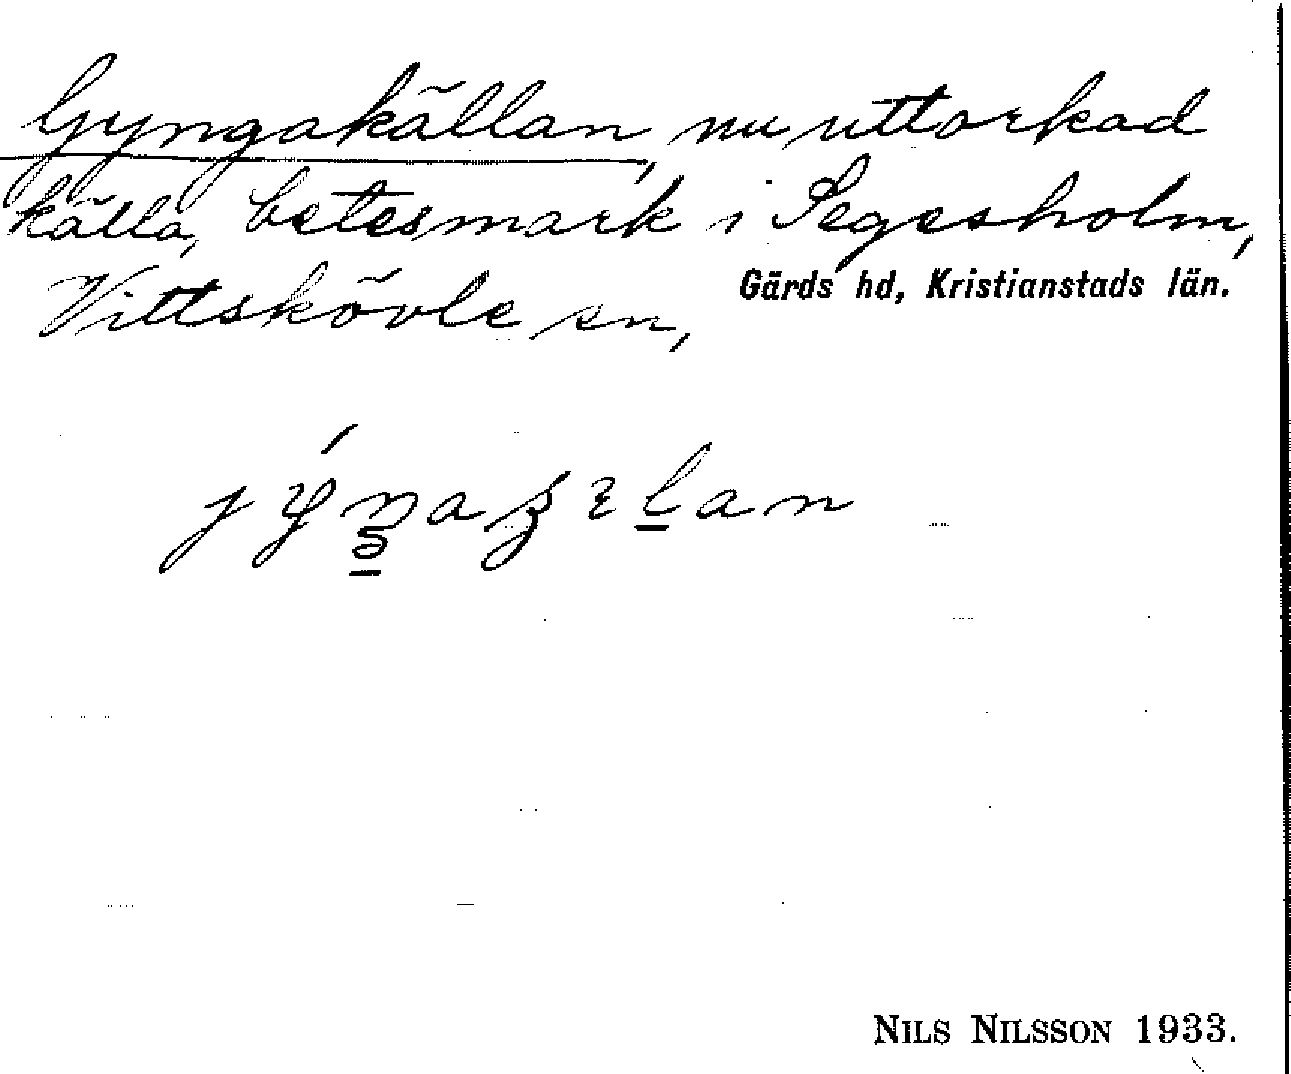 Gyngakällan, nu uttorkad
källa, betesmark i Segesholm,
Vittskövle sn,
Gärds hd, Kristianstads län.
NILS NILSSON 1933.